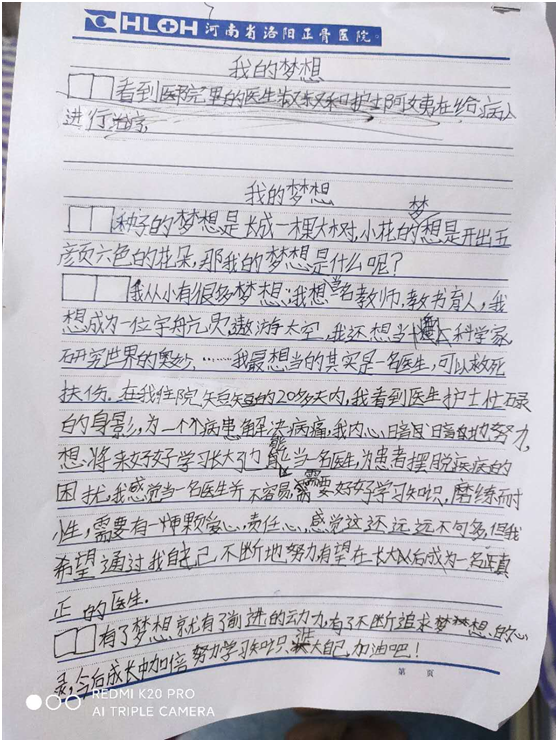 HLOH 河南省洛阳正骨医院
我的梦想
看到医院里的医生叔叔和护士阿姨在给病人
进行治疗
我的梦想
种子的梦想是长成一棵大树,小花的梦想是开出五
颜六色的花朵,那我的梦想是什么呢?
我从小有很多梦想;我想当名教师.教书育人,我
想成为一位宇航员,遨游太空,我还想当科学家
研究世界的奥妙……我最想当的其实是一名医生,可以救死
扶伤.在我住院短短的20多天内,我看到医生护士忙碌
的身影,为一个个病患解决病痛,我内心暗暗地努力,
想.将来好好学习长大了也能当一名医生,为患者摆脱疾病的
困扰,我感觉当一名医生并不容易,需要好好学习知识.磨练耐
性,需要有一颗爱心.责任心,感觉这还远远不够,但我
希望通过我自己不断地努力有望在长大以后成为一名真
正的医生.
有了梦想就有了前进的动力,有了不断追求梦想.的心
灵,今后成长中加倍努力学习知识.大自己,加油吧!
第 页
REDMI K20 PRO
AI TRIPLE CAMERA